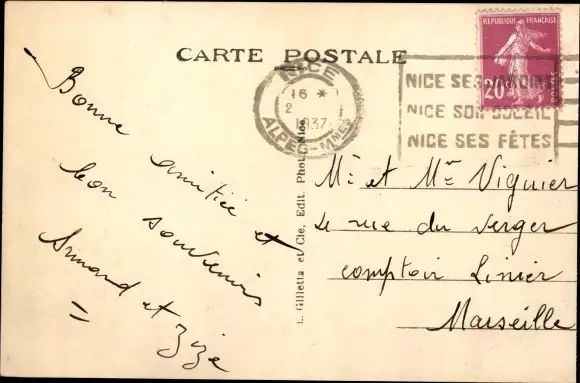 CARTE POSTALE
Bonne
amitiée et
bon souvenirs
Armand et Zize
L. Gilletta et Cie, Edit. Phot. Nice
NICE
16 *
2
1937
ALPES-Mmes
NICE SES JARDINS
NICE SON SOLEIL
NICE SES FÊTES
REPUBLIQUE FRANÇAISE
20
Mr et Mme Viguier
rue du Verger
comptoir Linier
Marseille